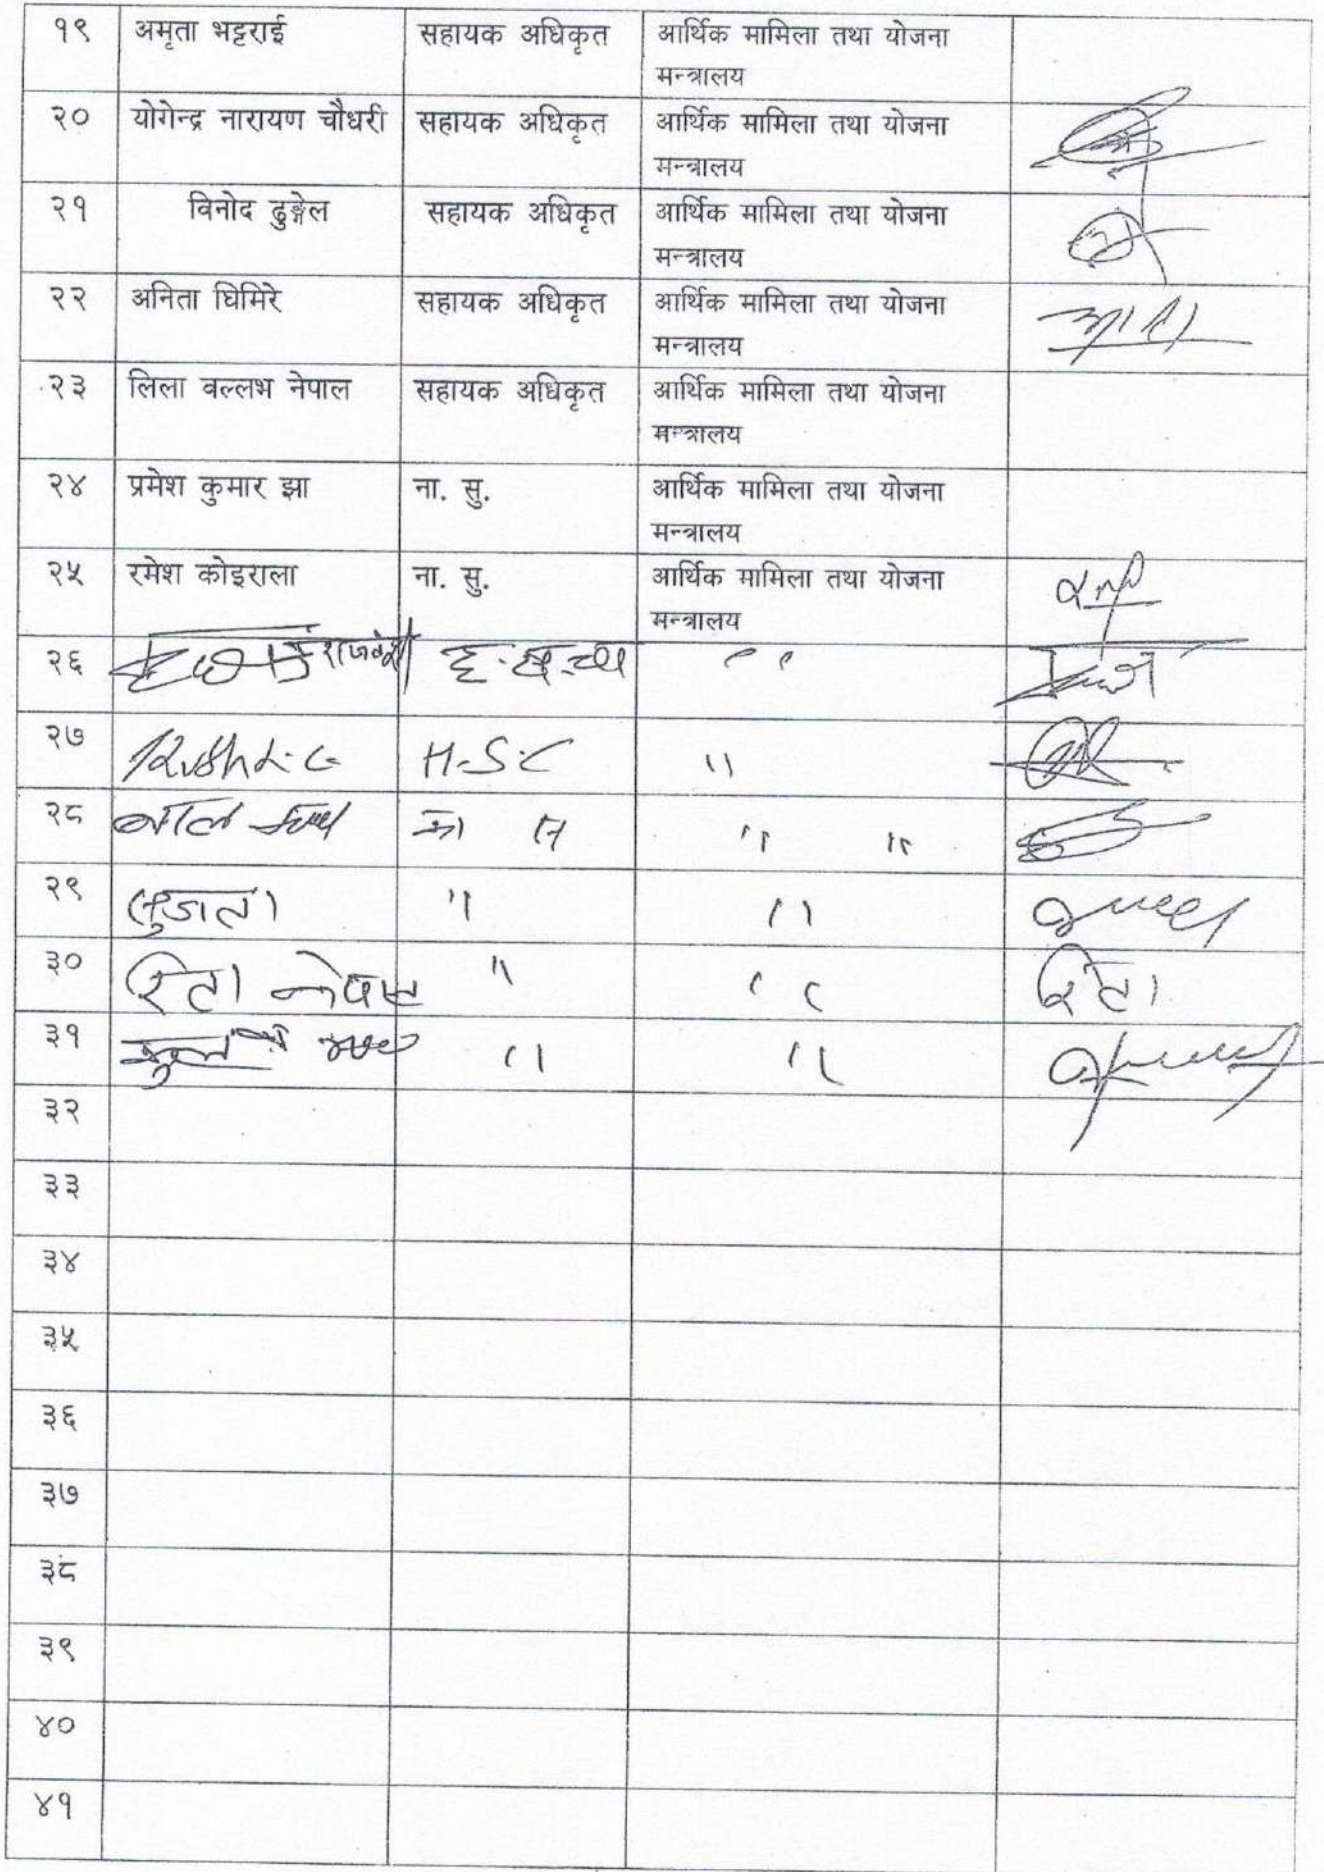 १९ अमृता भट्टराई सहायक अधिकृत आर्थिक मामिला तथा योजना
मन्त्रालय
२० योगेन्द्र नारायण चौधरी सहायक अधिकृत आर्थिक मामिला तथा योजना
मन्त्रालय
२१ विनोद ढुङ्गेल सहायक अधिकृत आर्थिक मामिला तथा योजना
मन्त्रालय
२२ अनिता घिमिरे सहायक अधिकृत आर्थिक मामिला तथा योजना
मन्त्रालय
२३ लिला वल्लभ नेपाल सहायक अधिकृत आर्थिक मामिला तथा योजना
मन्त्रालय
२४ प्रमेश कुमार झा ना. सु. आर्थिक मामिला तथा योजना
मन्त्रालय
२५ रमेश कोइराला ना. सु. आर्थिक मामिला तथा योजना
मन्त्रालय
२६ राजवंशी ह.स.चा "
२७ H.S.C "
२८ का स " "
२९ सुजाता " "
३० रिता नेपाल " " रिता
३१ " "
३२
३३
३४
३५
३६
३७
३८
३९
४०
४१